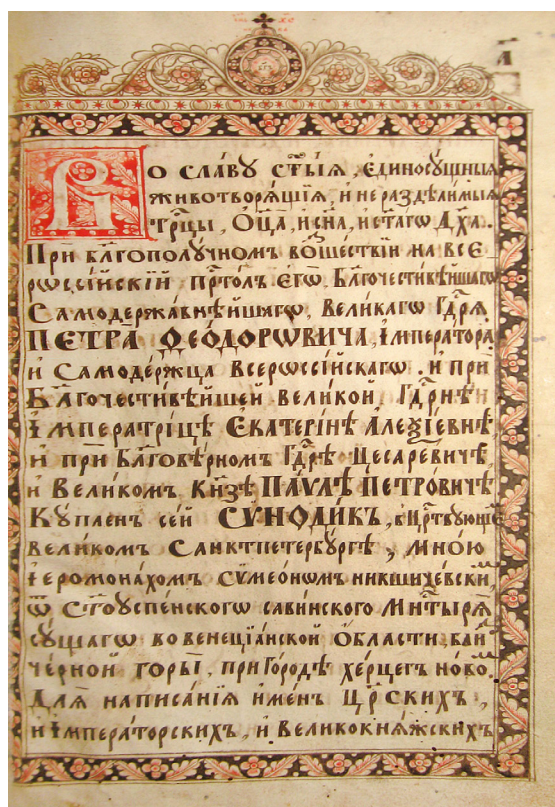 Во славу ст҃ыѧ, єдиносꙋщныѧ
животворѧщиѧ, и нераздѣлимыѧ
Трⷪ҇цы, Оц҃а, и сн҃а, и ст҃агѡ Дх҃а.
При благополучномъ возшествіи на все
рѡссійскій прⷭ҇толъ єгѡ, Благочестивѣйшагѡ
Самодержавнѣйшагѡ, великагѡ Гдⷭ҇рѧ
ПЕТРА ѲЕОДОРѠВИЧА, Імператора
и Самодержца Всерѡссійскагѡ. и при
Благочестивѣйшей великой, Гдⷭ҇рнѣ
Імператріцѣ Єкатерінѣ Алеѯіевнѣ,
и при Благовѣрномъ Гдⷭ҇рѣ Цесаревичѣ,
и Великомъ Кн҃зѣ ПАѴЛѢ ПЕТРОВИЧѢ
Купленъ сей СѴНОДИКЪ, въ Црⷭ҇твующе
великомъ Санктпетербургѣ, мною
Іеромонахомъ Сѵмеономъ никшичевски,
ѿ Ст҃оуспенскогѡ савинского Мн҃тырѧ
сущагѡ во венеціанской Области, бли
черной горы, при Городѣ херцегъ ново.
Длѧ написаніѧ именъ Црⷭ҇кихъ,
и Императорскихъ, и великокнѧжскихъ